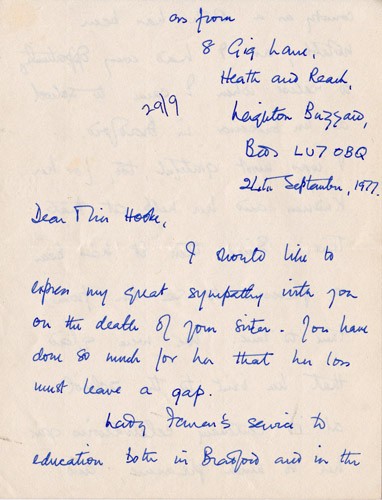 as from
8 Gig Lane,
Heath and Reach,
29/9
Leighton Buzzard,
Beds LU7 0BQ
24th September, 1977.
Dear Miss Hooke,
I should like to
express my great sympathy with you
on the death of your sister. You have
done so much for her that her loss
must leave a gap.
Lady 's service to
education both in Bradford and in the